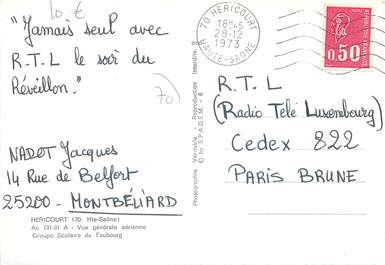 10 €
"Jamais seul avec
R.T.L le soir du
Réveillon."
70
NADOT Jacques
14 Rue de Belfort
25200 - MONTBÉLIARD
HERICOURT (70. Hte-Saône)
Ac 131-51 A - Vue générale aérienne
Groupe Scolaire du Faubourg
Photographie Véritable - Reproduction Interdite
© by S.P.A.D.E.M. - 6
70 HERICOURT
18H45
28-12
1973
HAUTE-SAONE
0,50
R.T.L
(Radio Télé Luxembourg)
Cedex 822
PARIS BRUNE